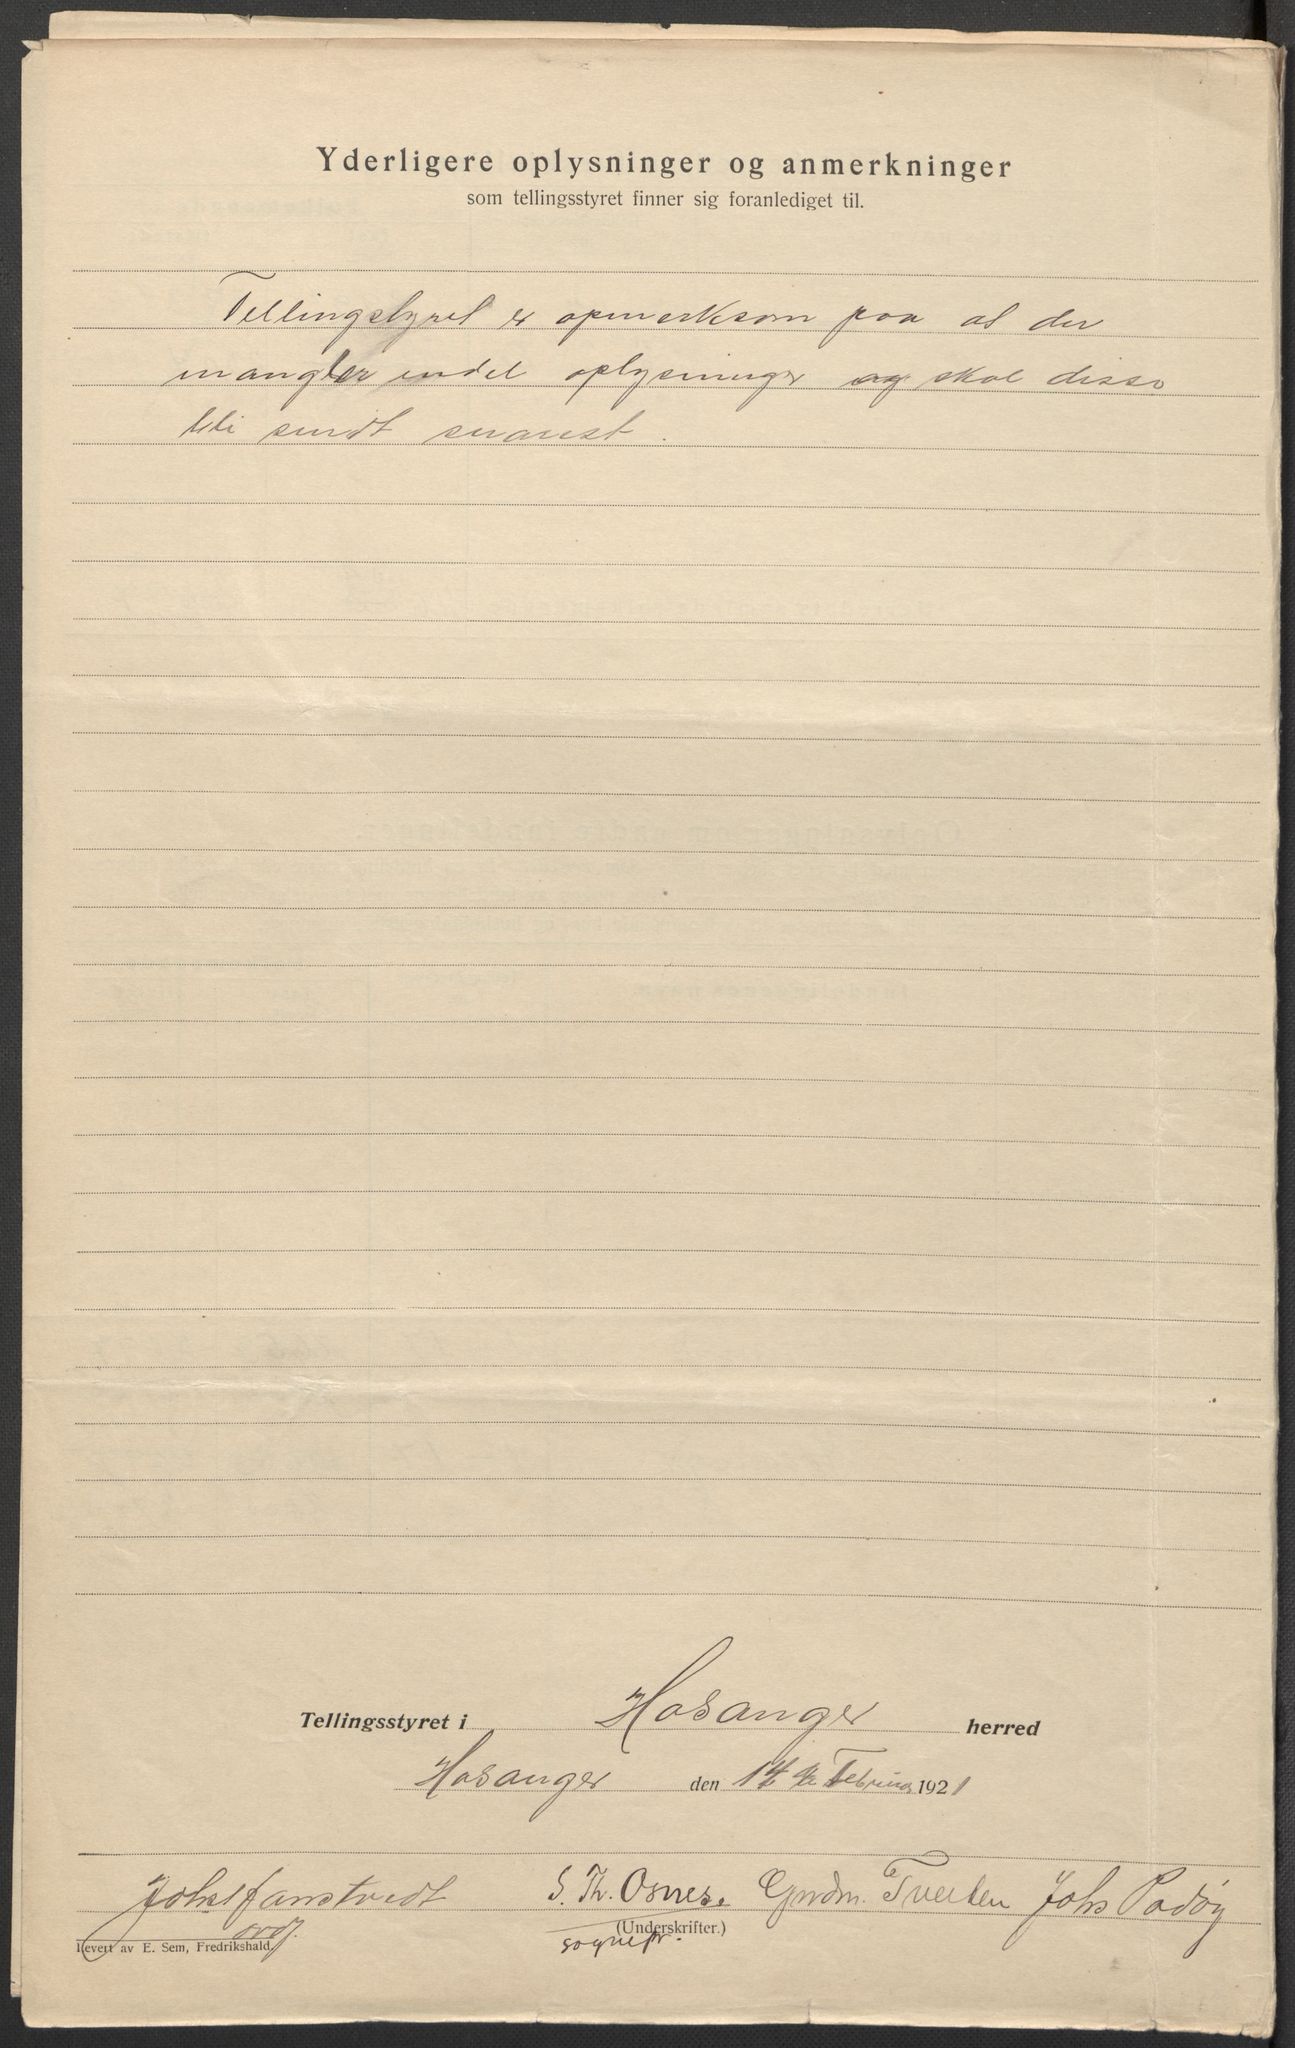 Yderligere oplysninger og anmerkninger
som tellingsstyret finner sig foranlediget til.
Tellingstyret er opmerksom paa at der
mangler endel oplysninger og skal disse
bli sendt snarest.
Tellingsstyret i Hosanger herred
Hosanger den 14 de Februar 1921
Johs Jamstvedt S. Th. Osnes. Gudm. Tveiten Johs Padøy
ordf. (Underskrifter.)
sognepr.
Levert av E. Sem, Fredrikshald.